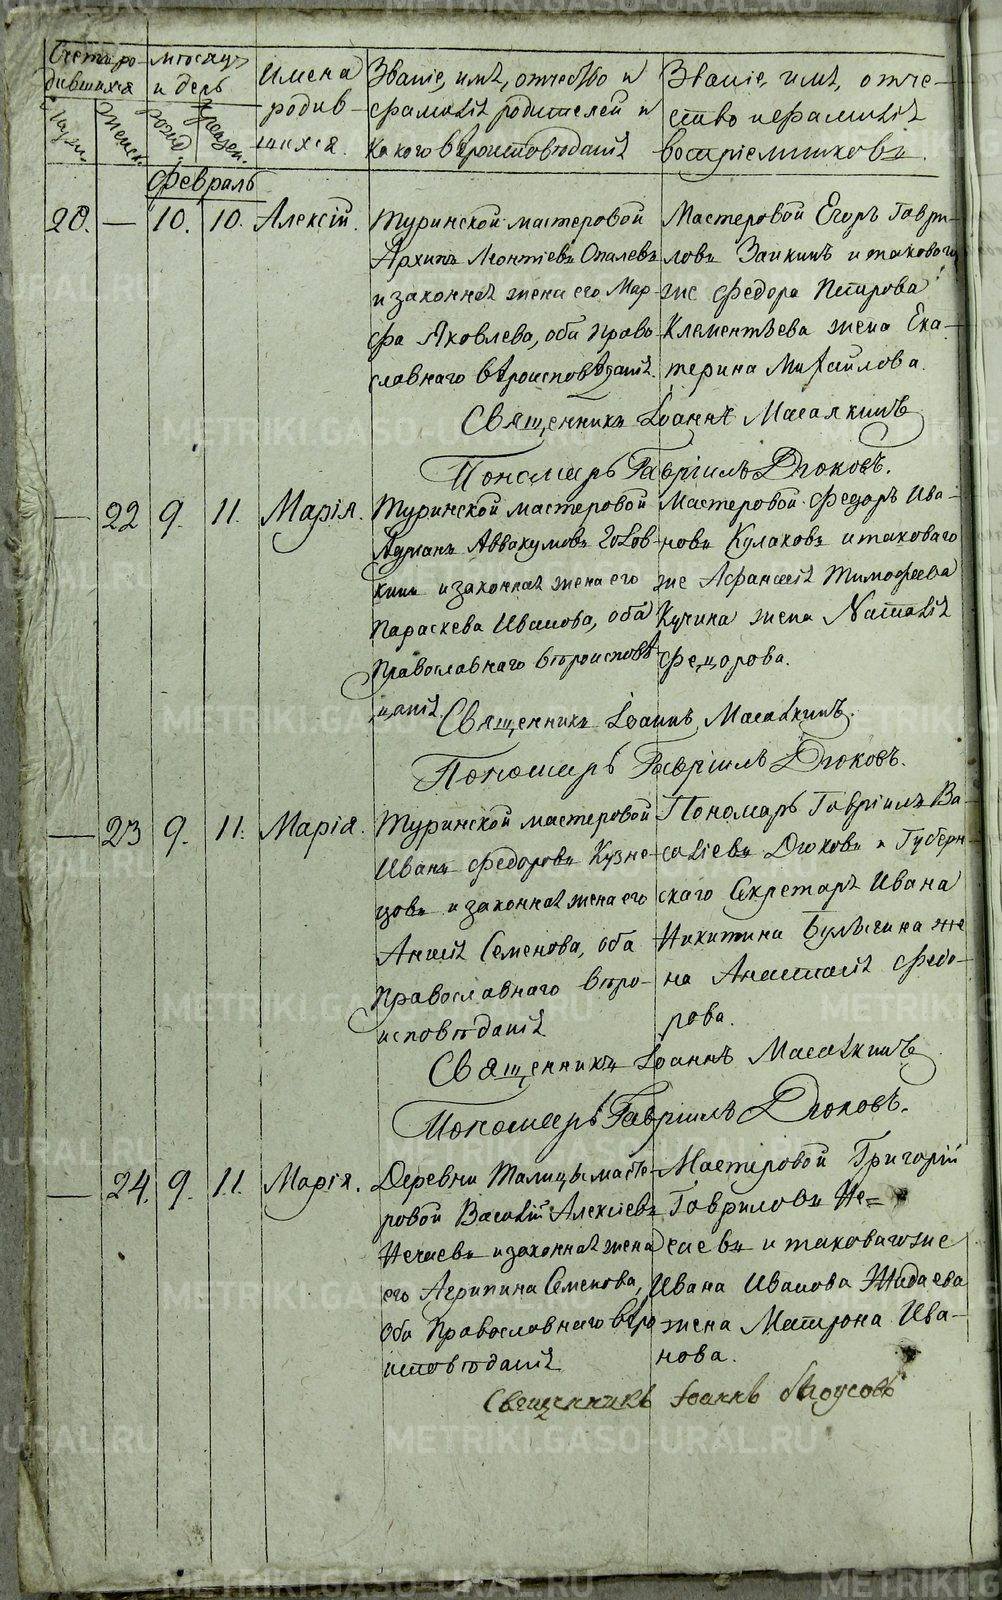 Счетъ ро-
дившихся
мѣсяцъ
и день
Имена
родив-
шихся.
Званіе, имя, отчество и
фамилія родителей и
какого вѣроисповѣданія
Званіе, имя, отче-
ство и фамилія
воспріемниковъ.
Февраль
20. — 10. 10. Алексій.
Туринской мастеровой
Архипъ Леонтіевъ Опалевъ
и законная жена его Мар-
фа Яковлева, оба право
славнаго вѣроисповѣданія.
Мастеровой Егоръ Гаври-
ловъ Заикинъ и таковаго
же Федора Петрова
Клементьева жена Ека-
терина Михайлова.
Священникъ Іоаннъ Масалкинъ
Пономарь Гавріилъ Дюковъ.
— 22 9. 11. Марія.
Туринской мастеровой
Аввакумовъ Голов-
кинъ и законная жена его
Параскева Иванова, оба
Православнаго вѣроисповѣ
данія.
Мастеровой Федоръ Ива-
новъ Кулаковъ и таковаго
же Афанасія Тимофеева
Кучина жена Наталія
Федорова.
Священникъ Іоаннъ Масалкинъ.
Пономарь Гавріилъ Дюковъ.
— 23 9. 11. Марія.
Туринской мастеровой
Иванъ Федоровъ Кузне-
цовъ и законная жена его
Анисія Семенова, оба
Православнаго вѣро-
исповѣданія
Пономарь Гавріилъ Ва-
силіевъ Дюковъ и Губерн-
скаго Секретаря Ивана
Никитина Булыгина же
на Анастасія Федо-
рова.
Священникъ Іоаннъ Масалкинъ
Пономарь Гавріилъ Дюковъ.
— 24. 9. 11. Марія.
Деревни Талицы масте-
ровой Василій Алексіевъ
Нечаевъ и законная жена
его Агрипина Семенова,
оба Православнаго вѣро
исповѣданія
Мастеровой Григорій
Гавриловъ Не=
чаевъ и таковаго же
Ивана Иванова Жидаева
жена Матрона Ива-
нова.
Священникъ Іоаннъ
METRIKI.GASO-URAL.RU